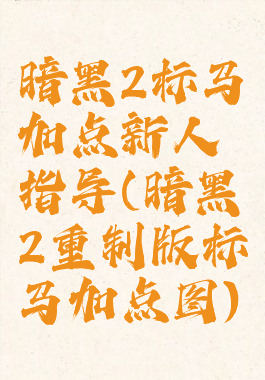 暗黑2标马
加点新人
指导(暗黑
2重制版标
马加点图)